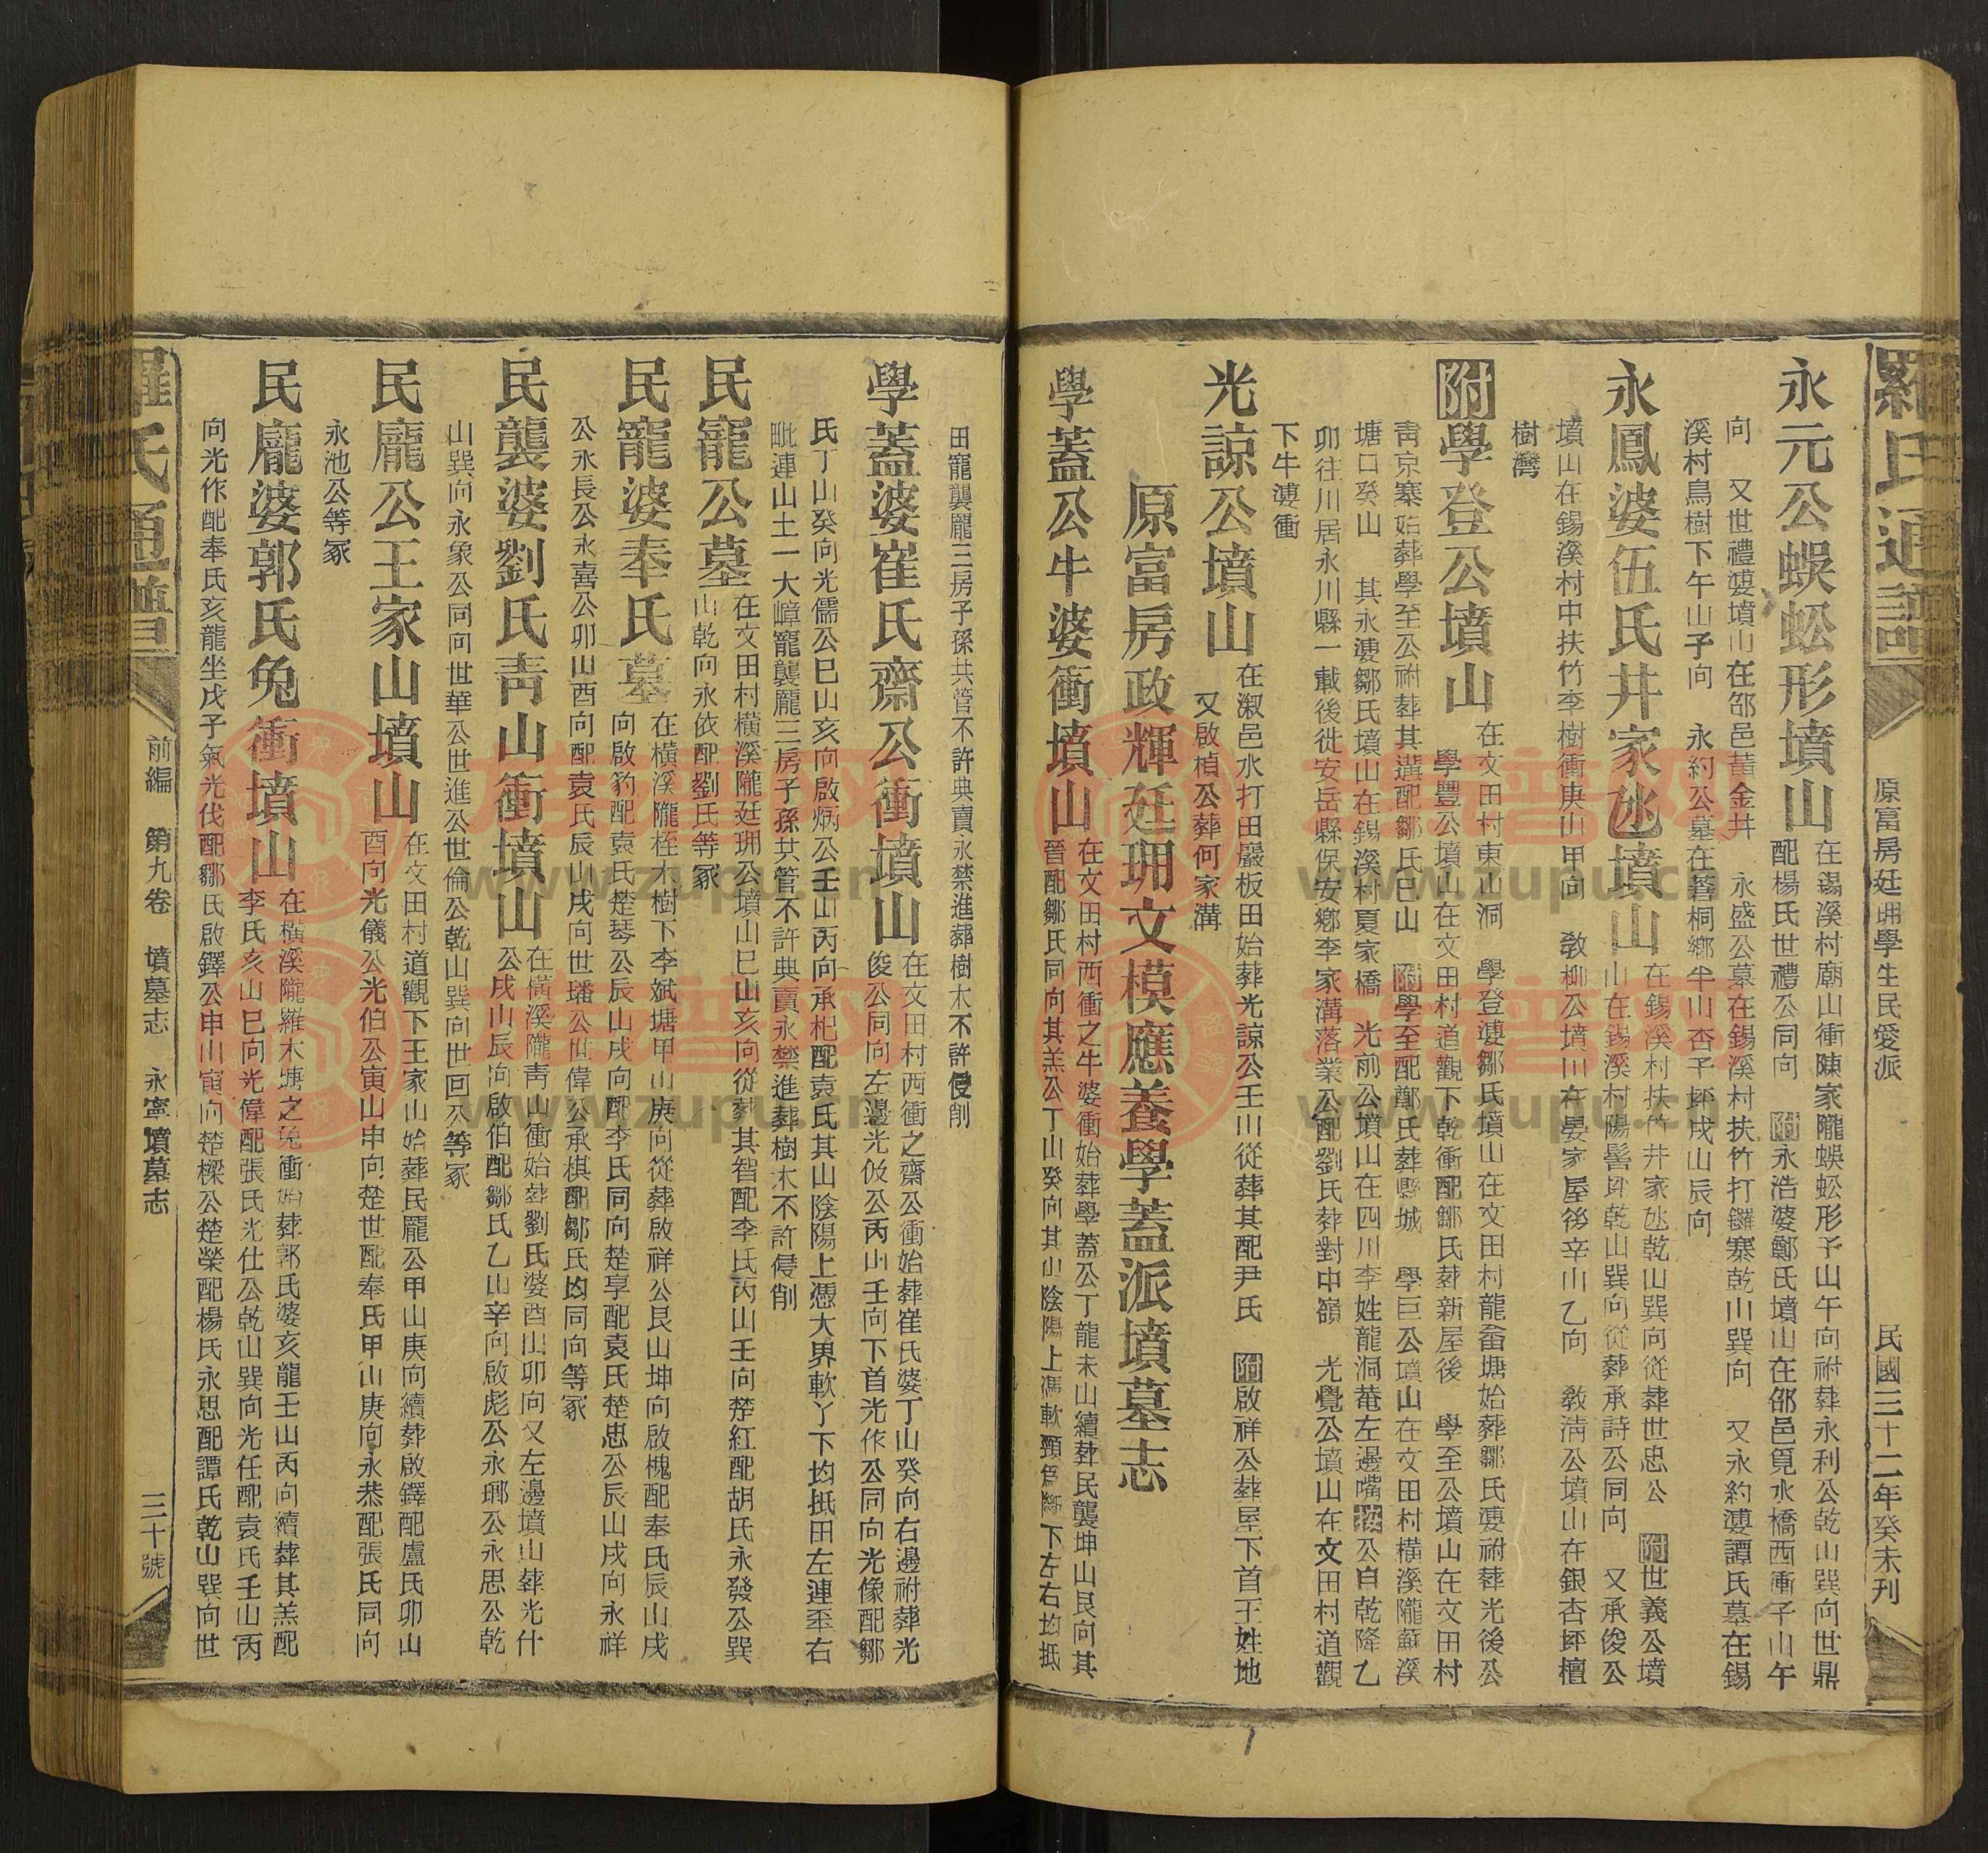 羅氏通譜
原富房廷珊學生民愛派
民國三十二年癸未刊
永元公蜈蚣形墳山
在錫溪村廟山衝陳家隴蜈蚣形子山午向祔葬永利公乾山巽向世鼎
配楊氏世禮公同向 附永浩婆鄭氏墳山在邵邑覓水橋西衝子山午
向 又世禮婆墳山在邵邑黃金井 永盛公墓在錫溪村扶竹打鑼寨乾山巽向 又永約婆譚氏墓在錫
溪村鳥樹下午山子向 永約公墓在蒼桐鄉半山杏子坪戌山辰向
永鳳婆伍氏井家氹墳山
在錫溪村扶竹井家氹乾山巽向從葬世忠公 附世義公墳
山在錫溪村陽髻耳乾山巽向從葬承詩公同向 又承俊公
墳山在錫溪村中扶竹李樹衝庚山甲向 敎柳公墳山在晏家屋後辛山乙向 敎淸公墳山在銀杏坪檀
樹灣
附學登公墳山
在文田村東山洞 學登婆鄒氏墳山在文田村龍畬塘始葬鄒氏婆祔葬光後公
學豐公墳山在文田村道觀下乾衝配鄒氏葬新屋後 學至公墳山在文田村
靑京寨始葬學至公祔葬其溝配鄒氏巳山 附學至配鄭氏葬縣城 學巨公墳山在文田村橫溪隴蘇溪
塘口癸山 其永婆鄒氏墳山在錫溪村夏家橋 光前公墳山在四川李姓龍洞菴左邊嘴按公自乾隆乙
卯往川居永川縣一載後徙安岳縣保安鄉李家溝落業公配劉氏葬對中嶺 光覺公墳山在文田村道觀
下牛婆衝
光諒公墳山
在溆邑水打田巖板田始葬光諒公壬山從葬其配尹氏 附啟祥公葬屋下首王姓地
又啟楨公葬何家溝
原富房政輝廷珊文模應養學蓋派墳墓志
學蓋公牛婆衝墳山
在文田村西衝之牛婆衝始葬學蓋公丁龍未山續葬民龔坤山艮向其
晉配鄒氏同向其羔公丁山癸向其山陰陽上馮軟頸爲斷下左右均抵
田寵龔龐三房子孫共管不許典賣永禁進葬樹木不許侵削
學蓋婆崔氏齋公衝墳山
在文田村西衝之齋公衝始葬崔氏婆丁山癸向右邊祔葬光
俊公同向左邊光伋公丙山壬向下首光作公同向光像配鄒
氏丁山癸向光儒公巳山亥向啟炳公壬山丙向承杞配袁氏其山陰陽上憑大界軟丫下均抵田左連平右
毗連山土一大嶂寵龔龐三房子孫共管不許典賣永禁進葬樹木不許侵削
民寵公墓
在文田村橫溪隴廷珊公墳山巳山亥向從葬其智配李氏丙山壬向楚紅配胡氏永發公巽
山乾向永依配劉氏等冢
民寵婆奉氏墓
在橫溪隴桎木樹下李斌塘甲山庚向從葬啟祥公艮山坤向啟槐配奉氏辰山戌
向啟豹配袁氏楚琴公辰山戌向配李氏同向楚享配袁氏楚忠公辰山戌向永祥
公永長公永喜公卯山酉向配袁氏辰山戌向世璠公世偉公承棋配鄒氏均同向等冢
民龔婆劉氏靑山衝墳山
在橫溪隴靑山衝始葬劉氏婆酉山卯向又左邊墳山葬光什
公戌山辰向啟伯配鄒氏乙山辛向啟彪公永瑯公永思公乾
山巽向永象公同向世華公世進公世倫公乾山巽向世回公等冢
民龐公王家山墳山
在文田村道觀下王家山始葬民龐公甲山庚向續葬啟鐸配盧氏卯山
酉向光儀公光伯公寅山申向楚世配奉氏甲山庚向永恭配張氏同向
永池公等冢
民龐婆郭氏兔衝墳山
在橫溪隴羅木塘之兔衝始葬郭氏婆亥龍壬山丙向續葬其羔配
李氏亥山巳向光偉配張氏光仕公乾山巽向光任配袁氏壬山丙
向光作配奉氏亥龍坐戊子氣光伐配鄒氏啟鐸公申山寅向楚樑公楚榮配楊氏永思配譚氏乾山巽向世
羅氏通譜
前編 第九卷 墳墓志 永寧墳墓志
三十號